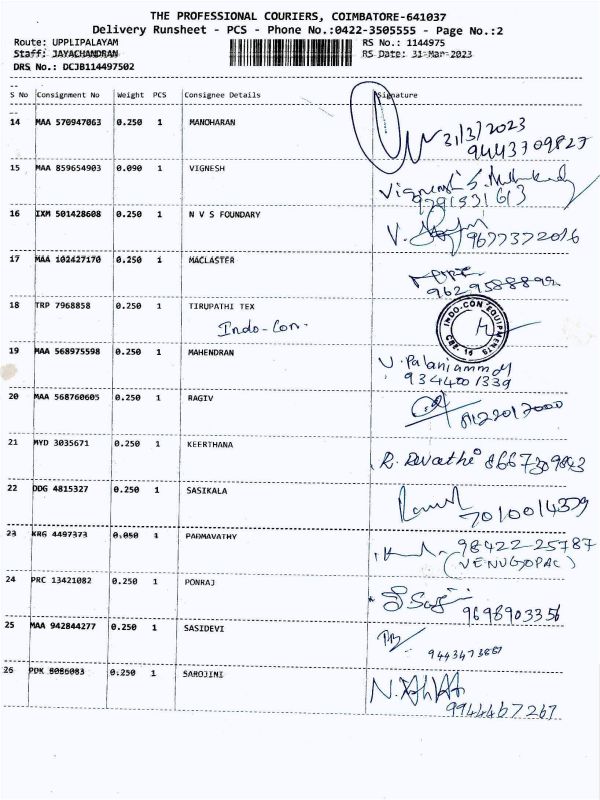 THE PROFESSIONAL COURIERS, COIMBATORE-641037
Delivery Runsheet - PCS - Phone No.:0422-3505555 - Page No.:2
Route: UPPLIPALAYAM RS No.: 1144975
Staff: JAYACHANDRAN RS Date: 31-Mar-2023
DRS No.: DCJB114497502
S No Consignment No Weight PCS Consignee Details Signature
14 MAA 570947063 0.250 1 MANOHARAN
31/3/2023
9443709827
15 MAA 859654903 0.090 1 VIGNESH
9791531613
16 IXM 501428608 0.250 1 N V S FOUNDARY
V. 9677372016
17 MAA 102427170 0.250 1 MACLASTER
9629588899
18 TRP 7968858 0.250 1 TIRUPATHI TEX
Indo-Con. INDO-CON EQUIPMENTS
CBE-15
19 MAA 568975598 0.250 1 MAHENDRAN
V. Palaniammal
9344001339
20 MAA 568760605 0.250 1 RAGIV
8122017000
21 MYD 3035671 0.250 1 KEERTHANA
R. Revathi 8667309843
22 DDG 4815327 0.250 1 SASIKALA
7010014379
23 KRG 4497373 0.050 1 PADMAVATHY
98422-25787
(VENUGOPAL)
24 PRC 13421082 0.250 1 PONRAJ
9698903356
25 MAA 942844277 0.250 1 SASIDEVI
9443473887
26 PDK 8086083 0.250 1 SAROJINI
9944467267